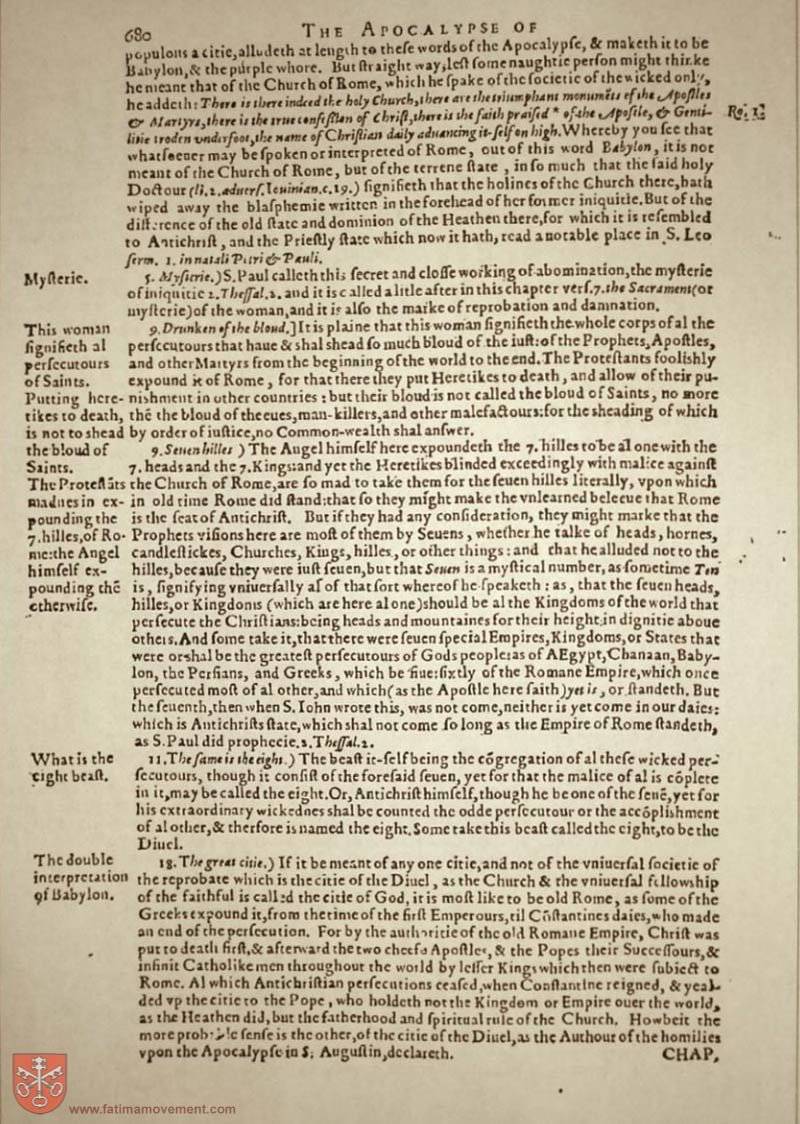 680
THE APOCALYPSE OF
populous a citie, alludeth at length to theſe words of the Apocalypſe, & maketh it to be
Babylon, & the purple whore. But ſtraight way, leſt ſome naughtie perſon might thinke
he meant that of the Church of Rome, which he ſpake of the ſocietie of the wicked only,
he addeth: There is there indeed the holy Church, there are the triumphant monumẽts of the Apoſtles
& Martyrs, there is the true confeſsion of Chriſt, there is the faith praiſed * of the Apoſtle, & Genti-
Ro. 1.
litie troden vnderfoot, the name of Chriſtian daily aduancing it-ſelf on high. Whereby you ſee that
whatſoeuer may be ſpoken or interpreted of Rome, out of this word Babylon, it is not
meant of the Church of Rome, but of the terrene ſtate, in ſo much that the ſaid holy
Doctour (li. 2. aduerſ. Iouinian. c. 19.) ſignifieth that the holines of the Church there, hath
wiped away the blaſphemie written in the forehead of her former iniquitie. But of the
difference of the old ſtate and dominion of the Heathen there, for which it is reſembled
to Antichriſt, and the Prieſtly ſtate which now it hath, read a notable place in S. Leo
ſerm. 1. in natali Petri & Pauli.
Myſterie.
5. Myſterie.) S. Paul calleth this ſecret and cloſſe working of abomination, the myſterie
of iniquitie 2. Theſſal. 2. and it is called a litle after in this chapter verſ. 7. the Sacrament (or
myſterie) of the woman, and it is alſo the marke of reprobation and damnation.
This woman
ſignifieth al
perſecutours
of Saints.
Putting here-
tikes to death,
is not to shead
the bloud of
Saints.
9. Drunken of the bloud.] It is plaine that this woman ſignifieth the whole corps of al the
perſecutours that haue & shal shead ſo much bloud of the iuſt: of the Prophets, Apoſtles,
and other Martyrs from the beginning of the world to the end. The Proteſtants fooliſhly
expound it of Rome, for that there they put Heretikes to death, and allow of their pu-
nishment in other countries: but their bloud is not called the bloud of Saints, no more
thẽ the bloud of theeues, man-killers, and other malefactours: for the sheading of which
by order of iuſtice, no Common-wealth shal anſwer.
The Proteſtãts
madnes in ex-
pounding the
7. hilles, of Ro-
me: the Angel
himſelf ex-
pounding thẽ
otherwiſe.
9. Seuen hilles) The Angel himſelf here expoundeth the 7. hilles to be al one with the
7. heads and the 7. Kings: and yet the Heretikes blinded exceedingly with malice againſt
the Church of Rome, are ſo mad to take them for the ſeuen hilles literally, vpon which
in old time Rome did ſtand: that ſo they might make the vnlearned beleeue that Rome
is the ſeat of Antichriſt. But if they had any conſideration, they might marke that the
Prophets viſions here are moſt of them by Seuens, whether he talke of heads, hornes,
candleſtickes, Churches, Kings, hilles, or other things: and that he alluded not to the
hilles, becauſe they were iuſt ſeuen, but that Seuen is a myſtical number, as ſometime Ten
is, ſignifying vniuerſally al of that ſort whereof he ſpeaketh: as, that the ſeuen heads,
hilles, or Kingdoms (which are here al one) should be al the Kingdoms of the world that
perſecute the Chriſtians: being heads and mountaines for their height in dignitie aboue
others. And ſome take it, that there were ſeuen ſpecial Empires, Kingdoms, or States that
were or shal be the greateſt perſecutours of Gods people: as of AEgypt, Chanaan, Baby-
lon, the Perſians, and Greeks, which be fiue: ſixtly of the Romane Empire, which once
perſecuted moſt of al other, and which (as the Apoſtle here ſaith) yet is, or ſtandeth. But
the ſeuenth, then when S. Iohn wrote this, was not come, neither is yet come in our daies:
which is Antichriſts ſtate, which shal not come ſo long as the Empire of Rome ſtandeth,
as S. Paul did prophecie. 2. Theſſal. 2.
What is the
eight beaſt.
11. The ſame is the eight.) The beaſt it-ſelf being the cõgregation of al theſe wicked per-
ſecutours, though it conſiſt of the foreſaid ſeuen, yet for that the malice of al is cõplete
in it, may be called the eight. Or, Antichriſt himſelf, though he be one of the ſeuẽ, yet for
his extraordinary wickednes shal be counted the odde perſecutour or the accõplishment
of al other, & therfore is named the eight. Some take this beaſt called the eight, to be the
Diuel.
The double
interpretation
of Babylon.
18. The great citie.) If it be meant of any one citie, and not of the vniuerſal ſocietie of
the reprobate which is the citie of the Diuel, as the Church & the vniuerſal fellowship
of the faithful is called the citie of God, it is moſt like to be old Rome, as ſome of the
Greeks expound it, from the time of the firſt Emperours, til Cõſtantines daies, who made
an end of the perſecution. For by the authoritie of the old Romane Empire, Chriſt was
put to death firſt, & afterward the two cheefe Apoſtles, & the Popes their Succeſſours, &
infinit Catholike men throughout the world by leſſer Kings which then were ſubiect to
Rome. Al which Antichriſtian perſecutions ceaſed, when Conſtantine reigned, & yeal-
ded vp the citie to the Pope, who holdeth not the Kingdom or Empire ouer the world,
as the Heathen did, but the fatherhood and ſpiritual rule of the Church. Howbeit the
more probable ſenſe is the other, of the citie of the Diuel, as the Authour of the homilies
vpon the Apocalypſe in S. Auguſtin, declareth.
CHAP.
www.fatimamovement.com